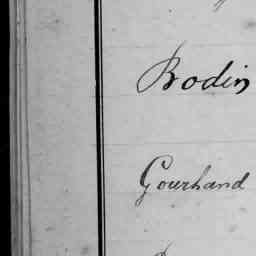 Bodin
Gourhand